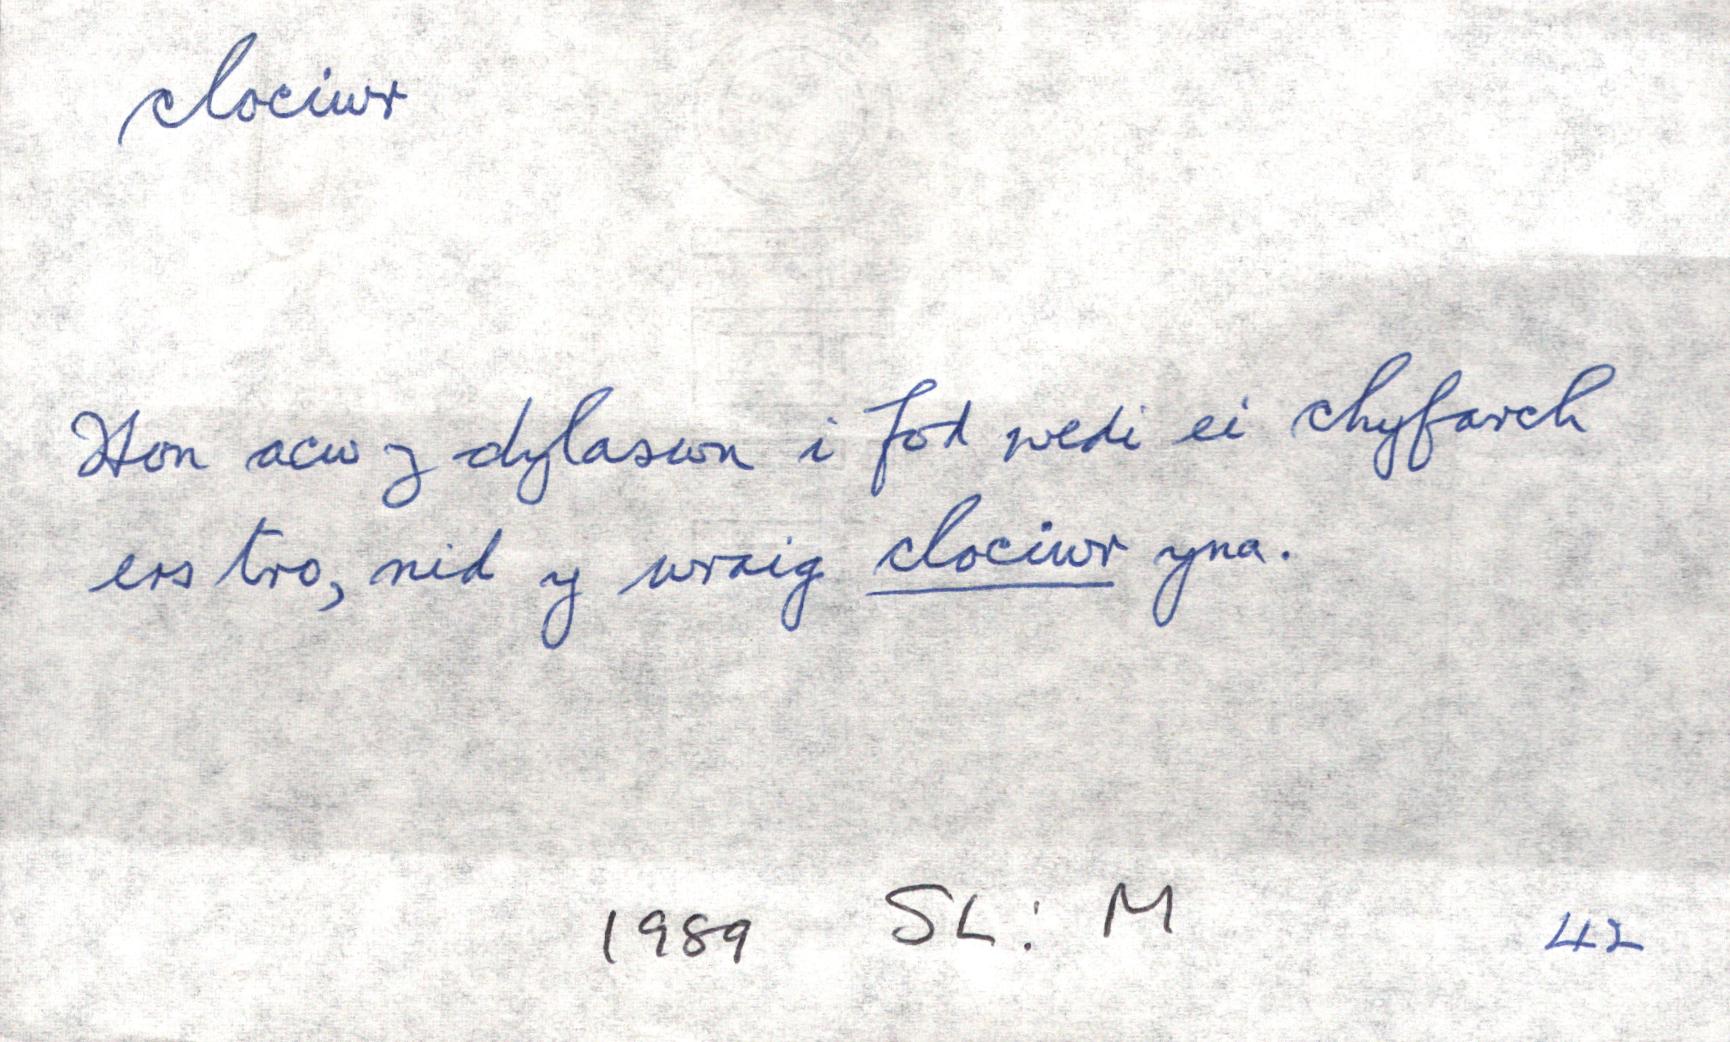 clociwr
Hon acw y dylaswn i fod wedi ei chyfarch
ers tro, nid y wraig clociwr yna.
1989 SL: M 42